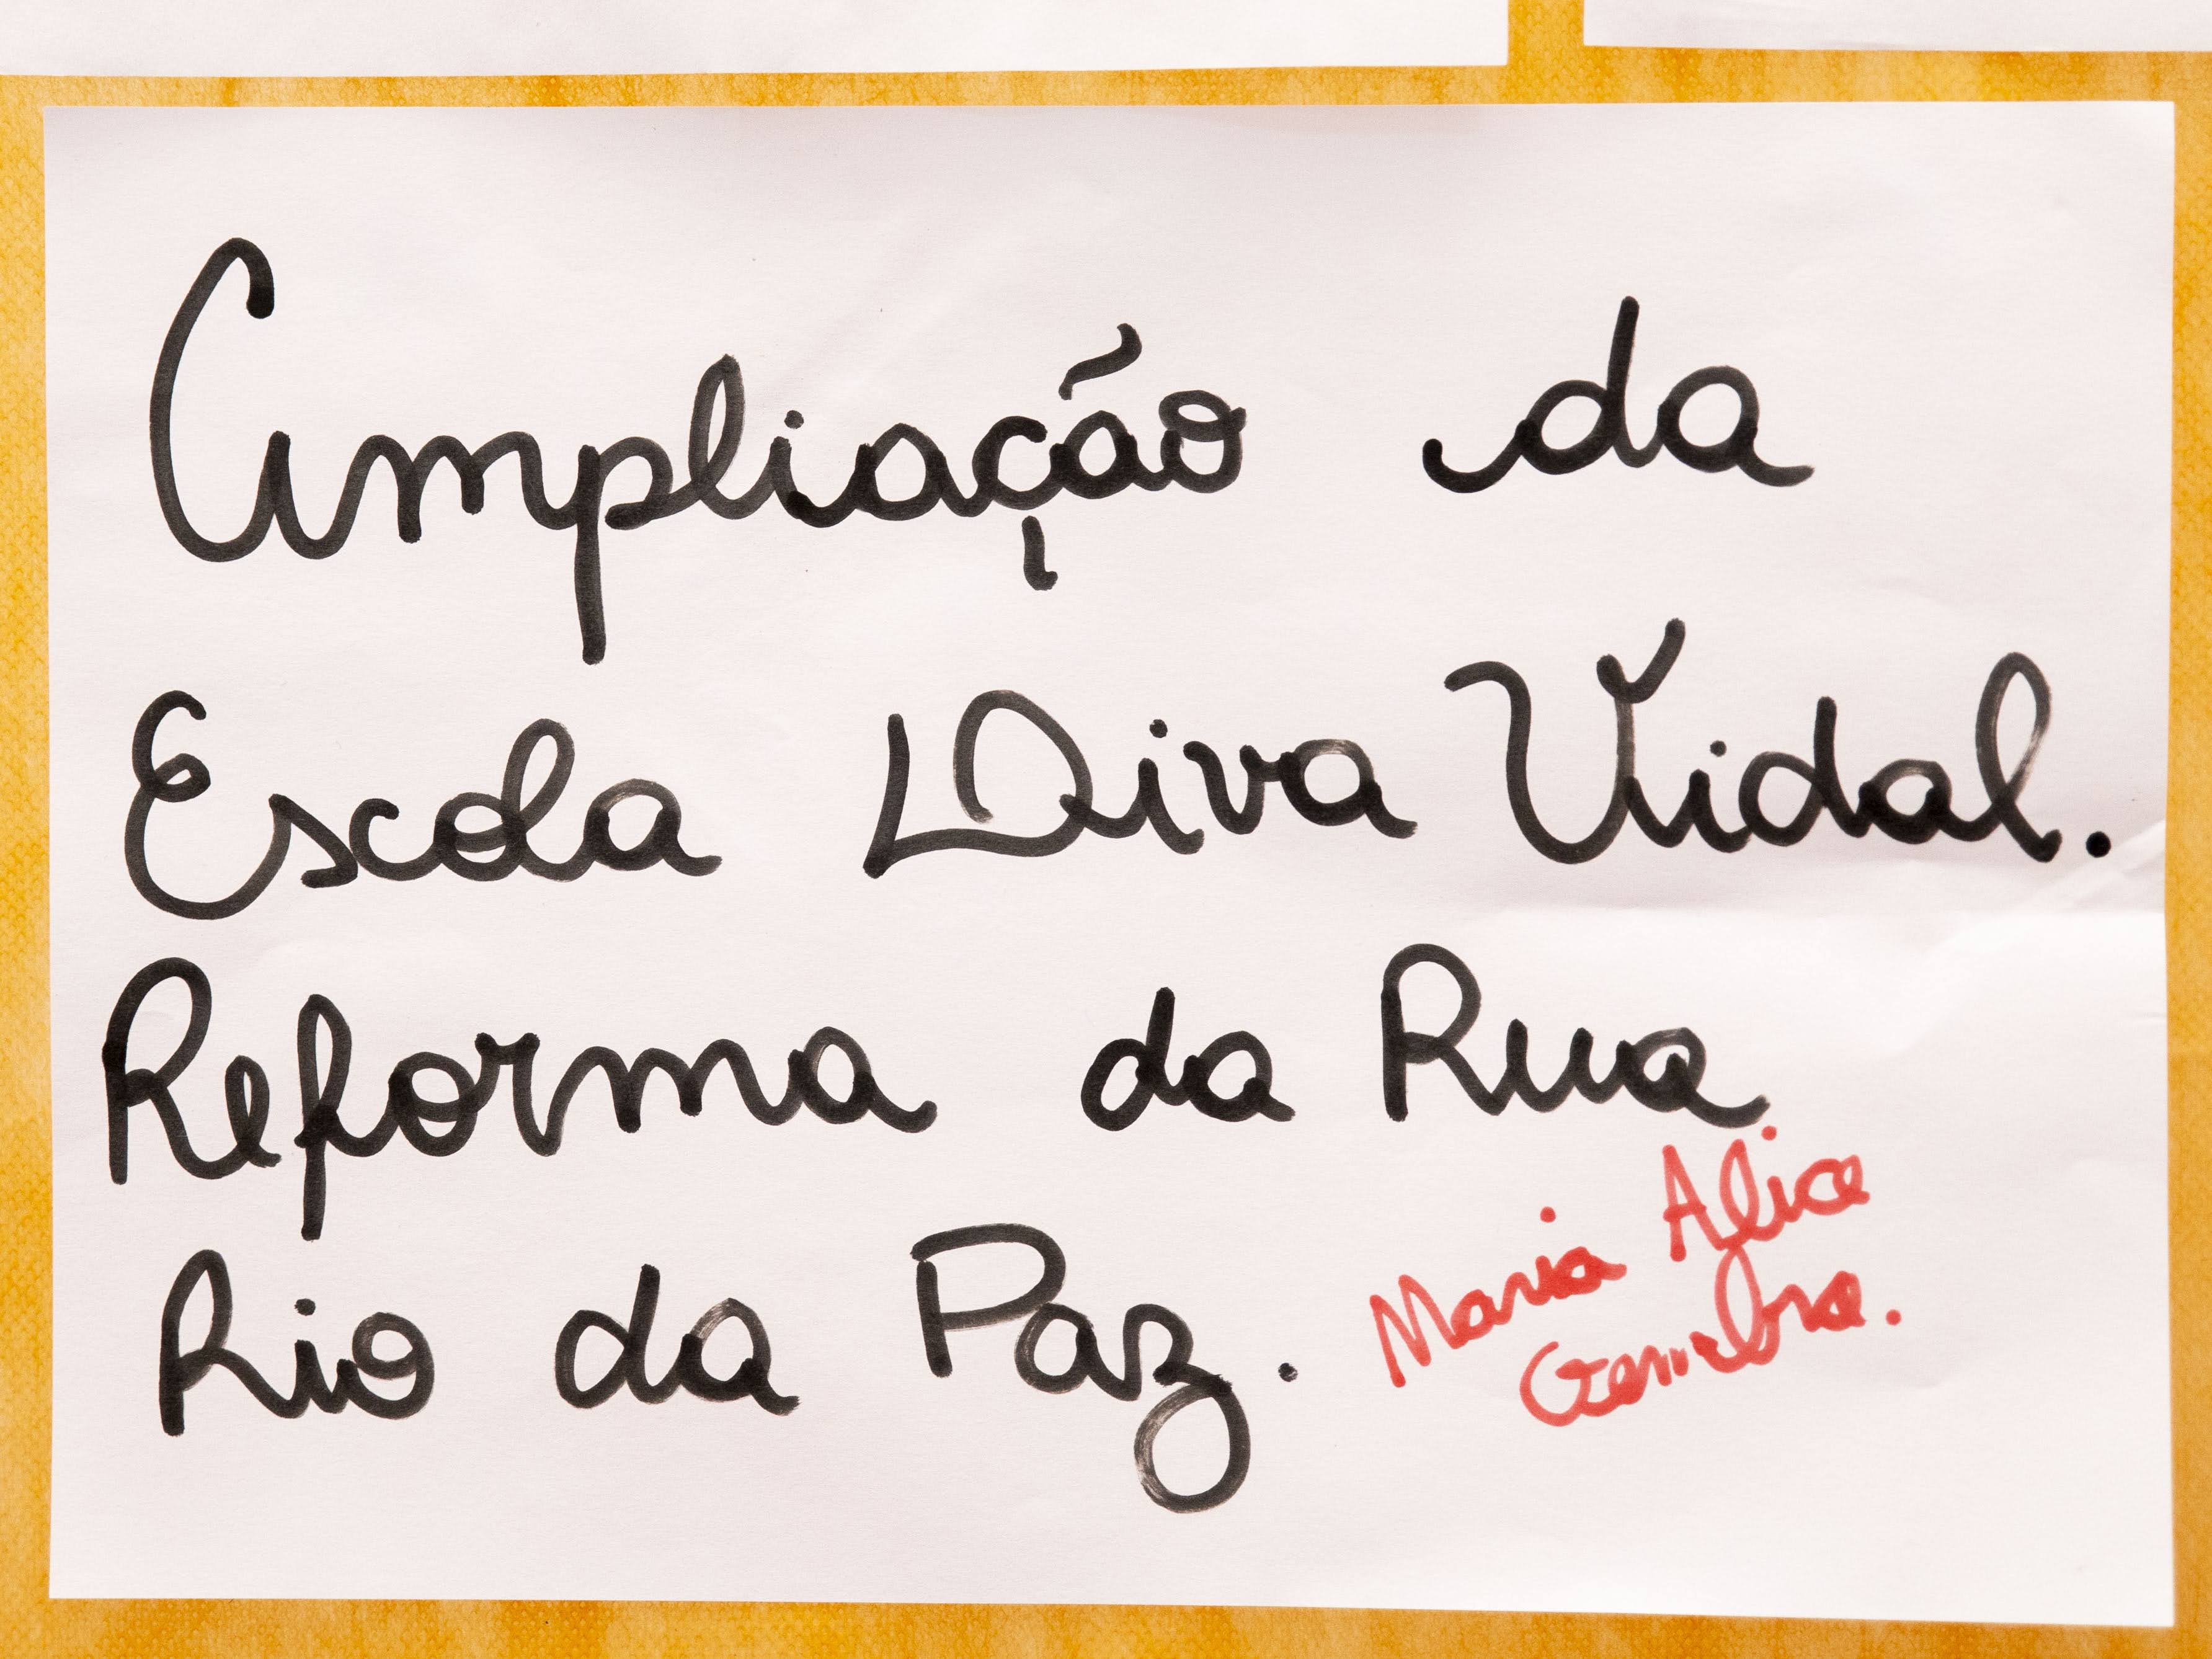 Ampliação da
Escola Diva Vidal.
Reforma da Rua
Rio da Paz.
Maria Alice